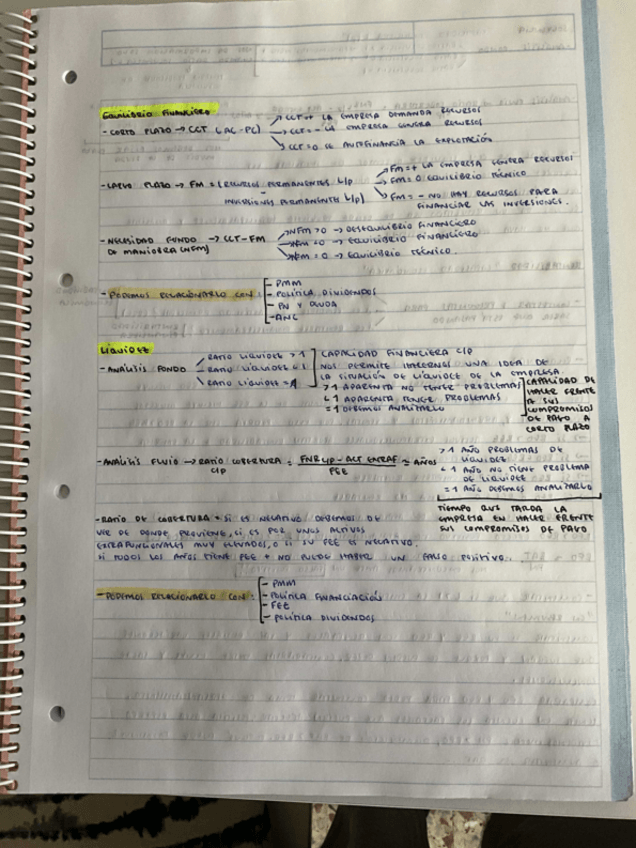 EQUILIBRIO FINANCIERO
- CORTO PLAZO → CCT (AC - PC)
CCT = + LA EMPRESA DEMANDA RECURSOS
CCT = - LA EMPRESA GENERA RECURSOS
CCT = 0 SE AUTOFINANCIA LA EXPLOTACIÓN
- LARGO PLAZO → FM = (RECURSOS PERMANENTES L/p
-
INVERSIONES PERMANENTES L/p)
FM = + LA EMPRESA GENERA RECURSOS
FM = 0 EQUILIBRIO TÉCNICO
FM = - NO HAY RECURSOS PARA
FINANCIAR LAS INVERSIONES.
- NECESIDAD FONDO → CCT - FM
DE MANIOBRA (NFM)
NFM > 0 → DESEQUILIBRIO FINANCIERO
NFM < 0 → EQUILIBRIO FINANCIERO
NFM = 0 → EQUILIBRIO TÉCNICO.
- PODEMOS RELACIONARLO CON:
- PMM
- POLÍTICA DIVIDENDOS
- PN Y DEUDA
- ANC
LIQUIDEZ
- ANÁLISIS FONDO
RATIO LIQUIDEZ > 1
RATIO LIQUIDEZ < 1
RATIO LIQUIDEZ = 1
CAPACIDAD FINANCIERA C/P
NOS PERMITE HACERNOS UNA IDEA DE
LA SITUACIÓN DE LIQUIDEZ DE LA EMPRESA.
> 1 APARENTA NO TENER PROBLEMAS
< 1 APARENTA TENER PROBLEMAS
= 1 DEBEMOS ANALIZARLO
CAPACIDAD DE
HACER FRENTE
A SUS
COMPROMISOS
DE PAGO A
CORTO PLAZO
- ANÁLISIS FLUJO → RATIO COBERTURA C/P = FNR C/P - ACT EXTRAF / FEE = AÑOS
> 1 AÑO PROBLEMAS DE
LIQUIDEZ
< 1 AÑO NO TIENE PROBLEMA
DE LIQUIDEZ
= 1 AÑO DEBEMOS ANALIZARLO
TIEMPO QUE TARDA LA
EMPRESA EN HACER FRENTE
SUS COMPROMISOS DE PAGO
- RATIO DE COBERTURA = SI ES NEGATIVO DEBEMOS DE
VER DE DONDE PROVIENE, SI ES POR UNOS ACTIVOS
EXTRAFUNCIONALES MUY ELEVADOS, O SI SU FEE ES NEGATIVO.
SI TODOS LOS AÑOS TIENE FEE + NO PUEDE HABER UN FALSO POSITIVO.
- PODEMOS RELACIONARLO CON:
- PMM
- POLÍTICA FINANCIACIÓN
- FEE
- POLÍTICA DIVIDENDOS